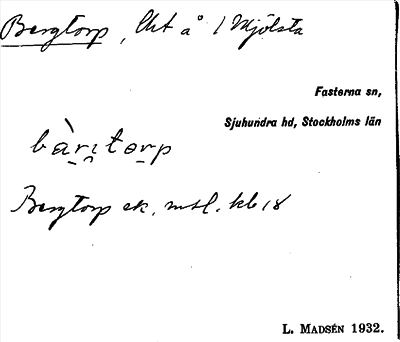 Bergtorp, lht å 1 Mjölsta
Fasterna sn,
Sjuhundra hd, Stockholms län
bà̠r̠ı̯tor̠p
Bergtorp ek. msl. kb 18
L. Madsén 1932.